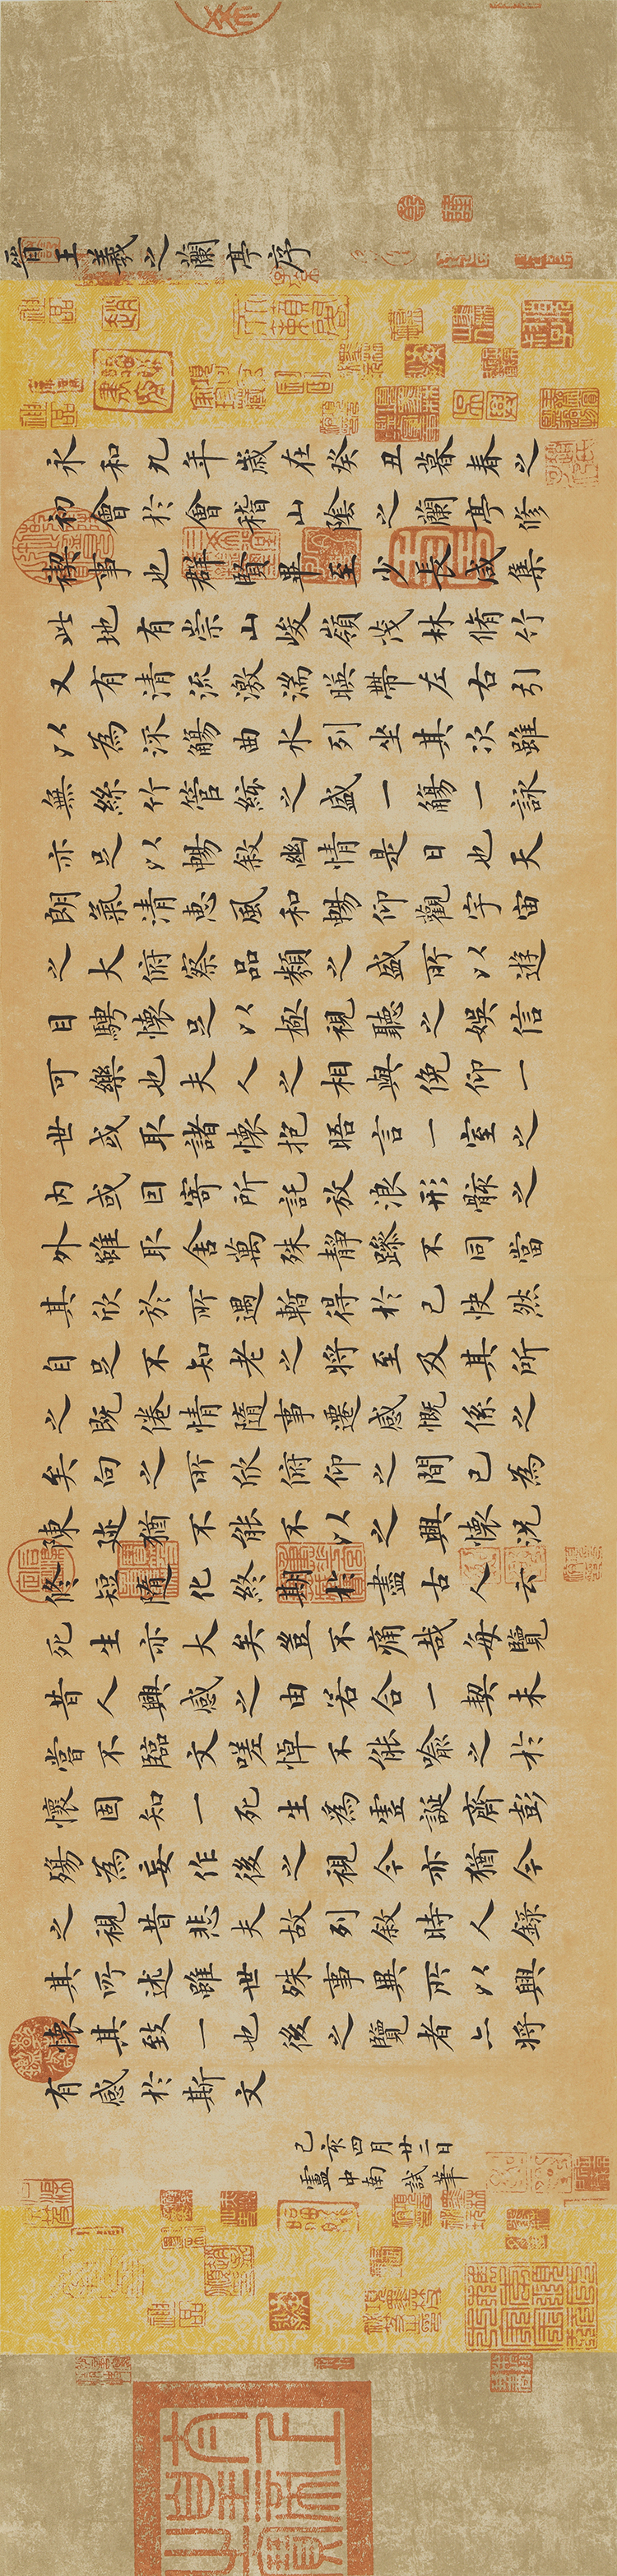 晉王羲之蘭亭序
永和九年歲在癸丑暮春之
初會於會稽山陰之蘭亭修
禊事也群賢畢至少長咸集
此地有崇山峻嶺茂林脩竹
又有清流激湍暎帶左右引
以為流觴曲水列坐其次雖
無絲竹管絃之盛一觴一詠
亦足以暢敘幽情是日也天
朗氣清惠風和暢仰觀宇宙
之大俯察品類之盛所以遊
目騁懷足以極視聽之娛信
可樂也夫人之相與俛仰一
世或取諸懷抱晤言一室之
內或因寄所託放浪形骸之
外雖取舍萬殊靜躁不同當
其欣於所遇暫得於己快然
自足不知老之將至及其所
之既倦情隨事遷感慨係之
矣向之所欣俯仰之間已為
陳迹猶不能不以之興懷況
修短隨化終期於盡古人云
死生亦大矣豈不痛哉每覽
昔人興感之由若合一契未
嘗不臨文嗟悼不能喻之於
懷固知一死生為虛誕齊彭
殤為妄作後之視今亦猶今
之視昔悲夫故列敘時人錄
其所述雖世殊事異所以興
懷其致一也後之覽者亦將
有感於斯文
己亥四月廿二日
盧中南試筆